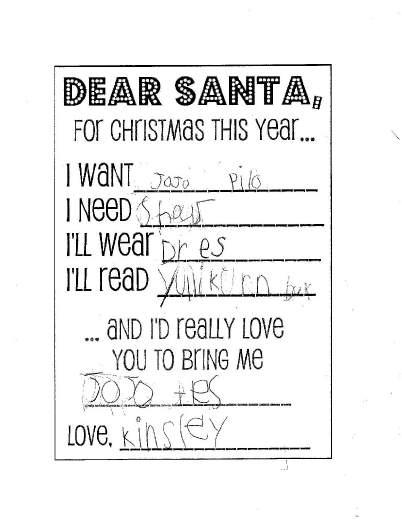 DEAR SANTA,
FOR CHRISTMAS THIS YEAR...
I WANT JoJo Pilo
I NEED
I'LL WEAR Dr es
I'LL READ yunikurn buk
... AND I'D REALLY LOVE
YOU TO BRING ME
JOJO
LOVE, kinsley